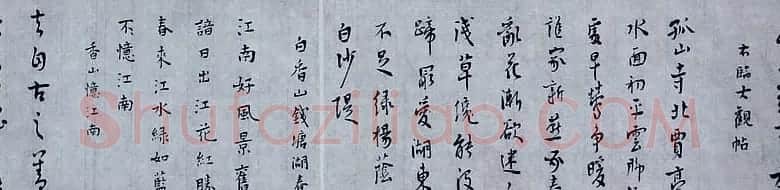 右臨大觀帖
孤山寺北賈亭
水面初平雲腳
處早鶯爭暖
誰家新燕啄春
亂花漸欲迷
淺草纔能沒
蹄最愛湖東
不足綠楊蔭
白沙隄
白香山錢塘湖春
江南好風景舊
諳日出江花紅勝
春來江水綠如藍
不憶江南
香山憶江南
夫自古之善
Shufaziliao.COM